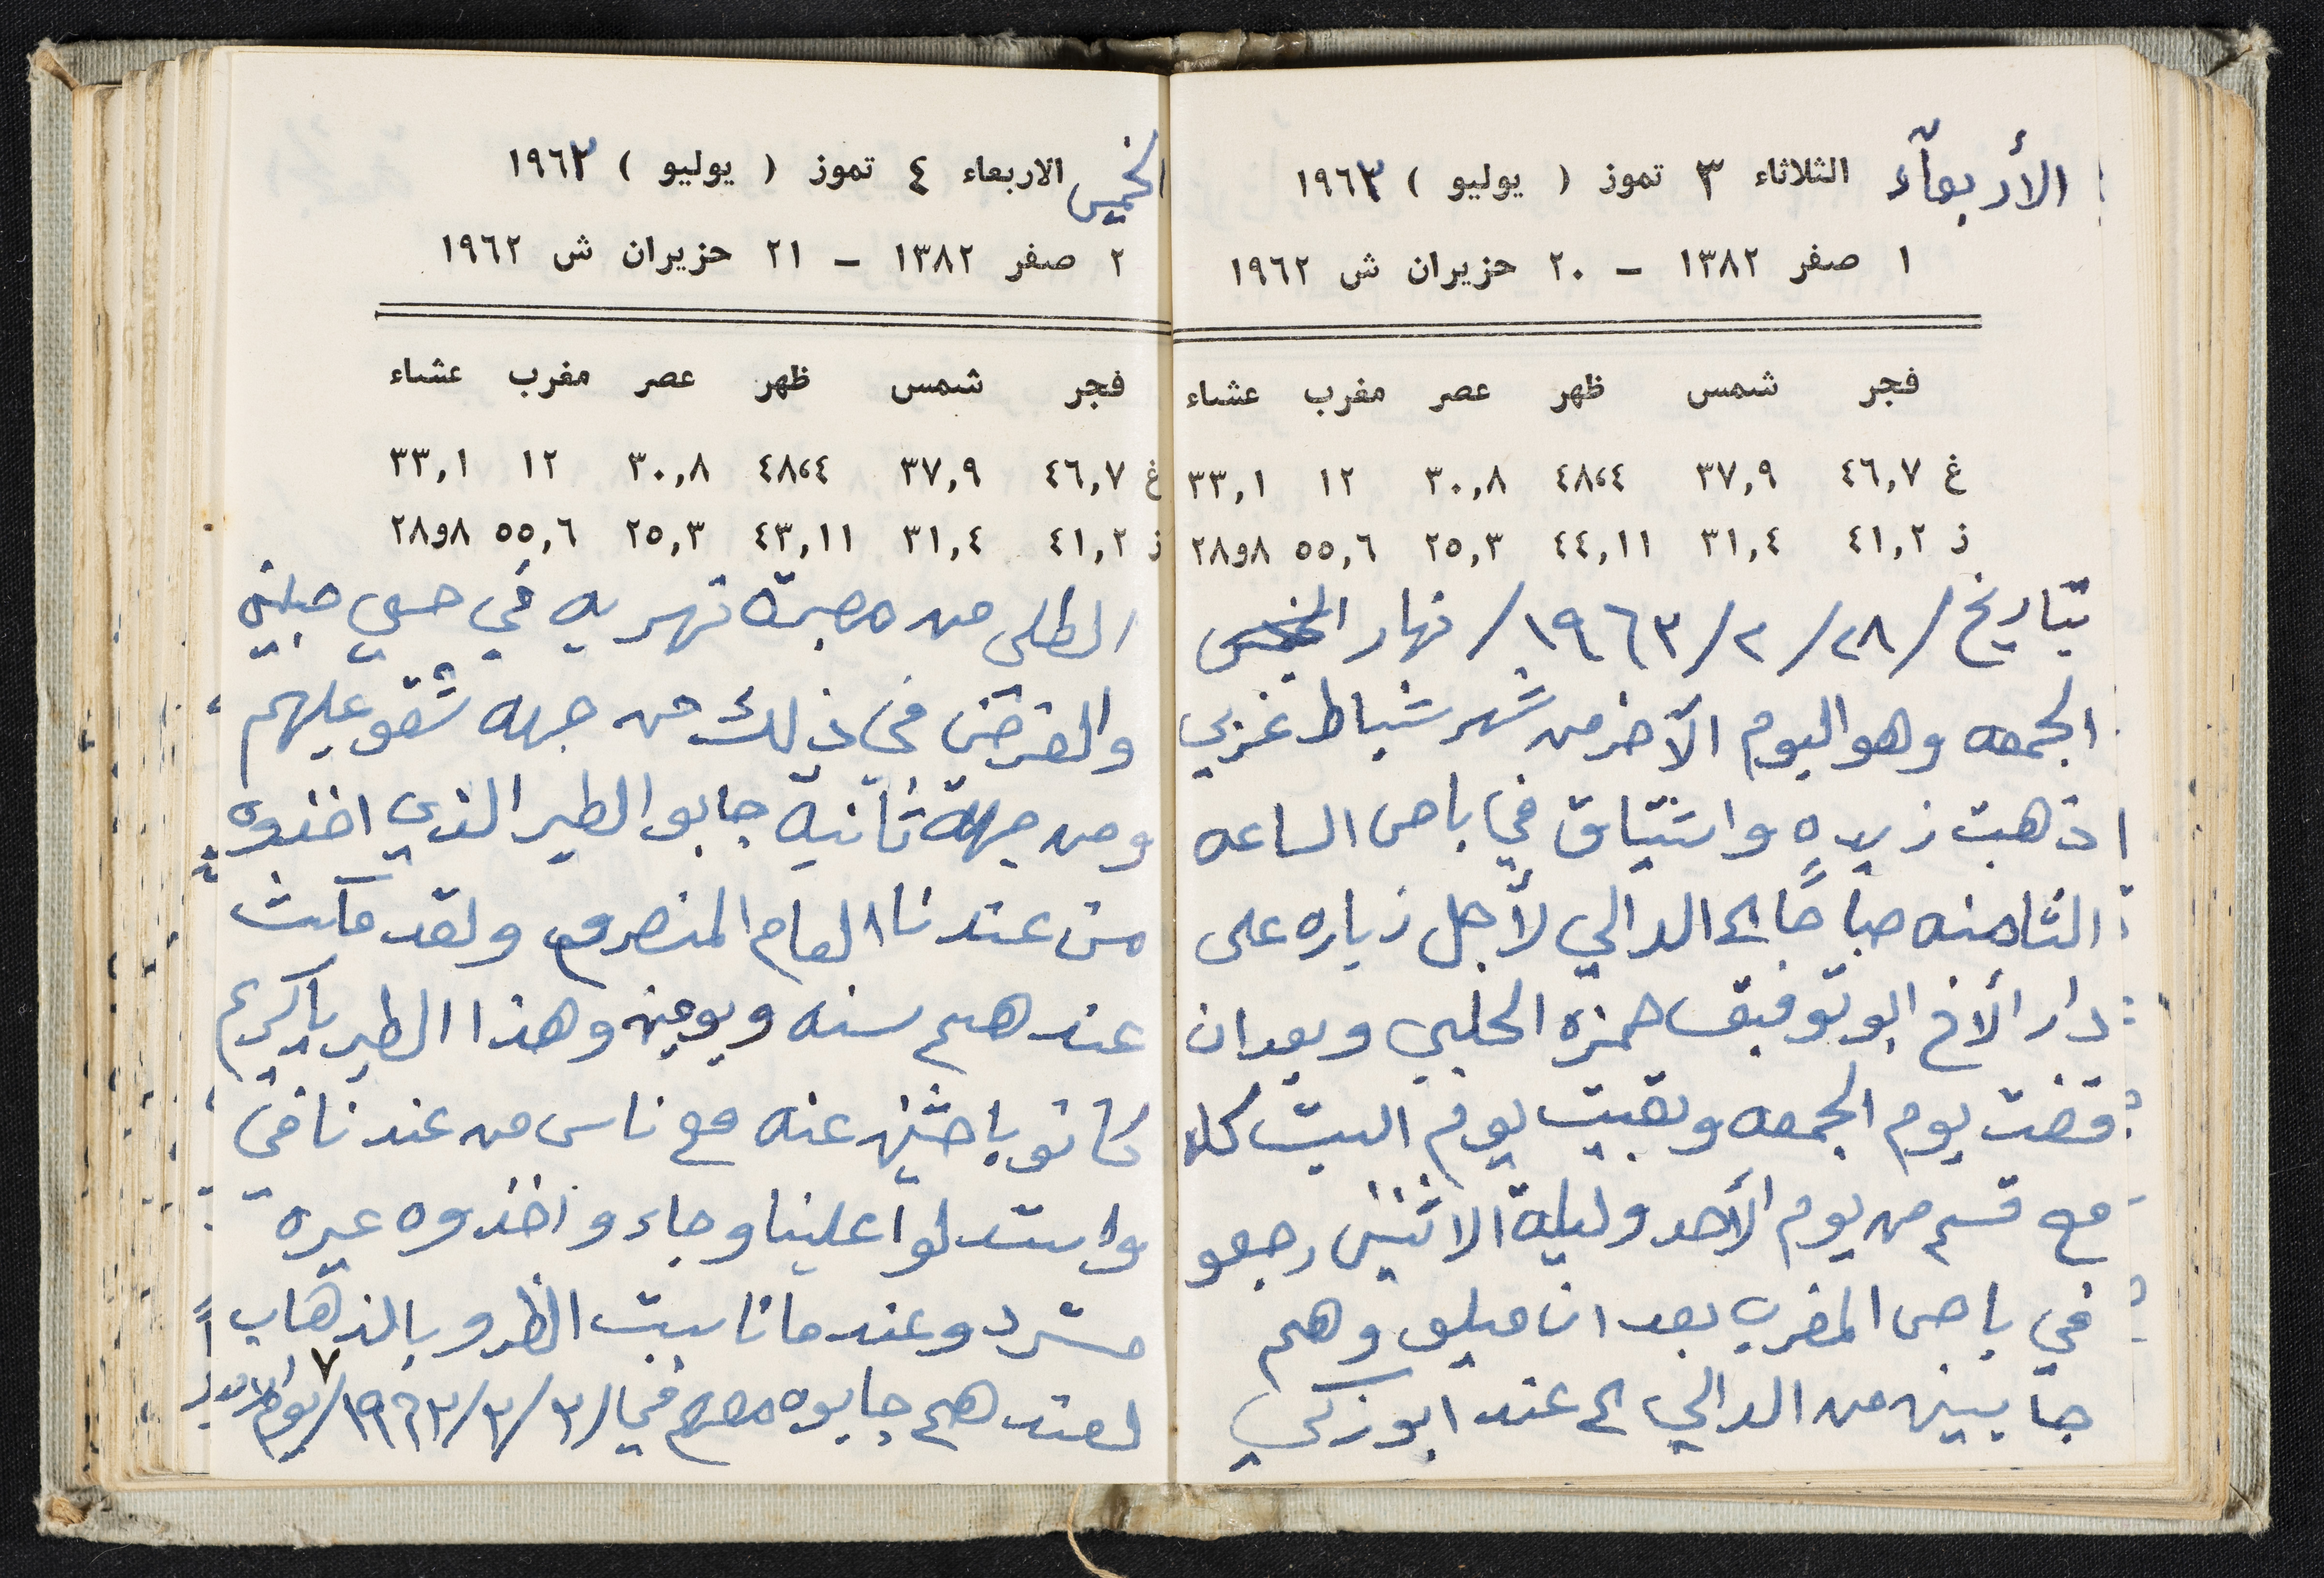 الأربعآء الثلاثاء ٣ تموز ( يوليو ) ١٩٦٣
١ صفر ١٣٨٢ - ٢٠ حزيران ش ١٩٦٢
فجر شمس ظهر عصر مغرب عشاء
غ ٤٦,٧ ٣٧,٩ ٤٨،٤ ٣٠,٨ ١٢ ٣٣,١
ز ٤١,٢ ٣١,٤ ٤٤,١١ ٢٥,٣ ٥٥,٦ ٨و٢٨
بتاريخ /٢٨/٢/١٩٦٣/ نهار الخميس
الجمعه وهو اليوم الآخر من شهر شباط غربي
اذهبت زيده واشتياق في باص الساعه
الثامنه صباحاً الى الدالي لأجل زياره على
دار الأخ ابو توفيق حمزه الحلبي وبعد ان
قضت يوم الجمعه وبقيت يوم السبت كله
مع قسم من يوم الأحد وليلة الاثنين رجعو
في باص المغرب بعد ان ميلو وهم
جايين من الدالي الى عند ابو زكي
الخميس الاربعاء ٤ تموز ( يوليو ) ١٩٦٣
٢ صفر ١٣٨٢ - ٢١ حزيران ش ١٩٦٢
فجر شمس ظهر عصر مغرب عشاء
غ ٤٦,٧ ٣٧,٩ ٤٨،٤ ٣٠,٨ ١٢ ٣٣,١
ز ٤١,٢ ٣١,٤ ٤٣,١١ ٢٥,٣ ٥٥,٦ ٨و٢٨
الطلي من في حي
والغرض في ذلك من جهه شقو عليهم
ومن جهة ثانيه جابو الطير الذي اخذوه
من عندنا العام المنصرم ولقد مكث
عندهم سنه ويومين وهذا الطير ياكريم
كانو باحثين عنه مع ناس من عندنا في
واستدلوا علينا وجاءو اخذوه عيره
مسترد وعندما ناسبت الظروف بالذهاب
لعندهم جابوه معهم في /٣/٣/١٩٦٣/ يوم الاحد
٧